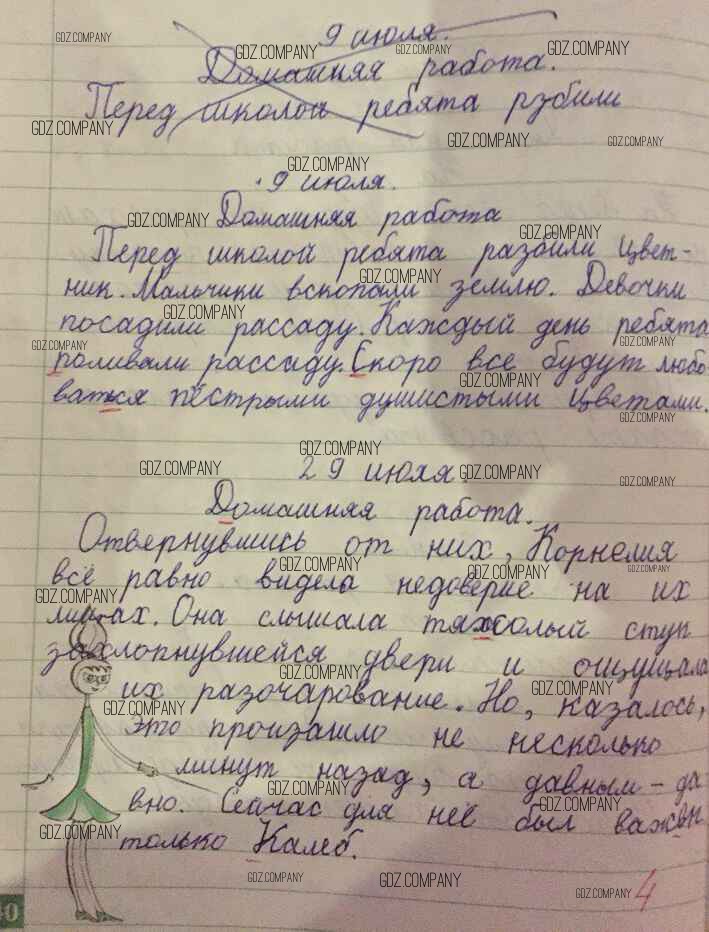 9 июля.
Домашняя работа.
Перед школой ребята рзбили
9 июля.
Домашняя работа
Перед школой ребята разбили цвет-
ник. Мальчики вскопали землю. Девочки
посадили рассаду. Каждый день ребята
роливали рассаду. Скоро все будут любо
ваться пёстрыми душистыми цветами.
29 июля.
Домашняя работа.
Отвернувшись от них, Корнелия
всё равно видела недоверие на их
лицах. Она слышала тяжолый стук
захлопнувшейся двери и ощущала
их разочарование. Но, казалось,
это произашло не несколько
минут назад, а давным-да
вно. Сейчас для неё был важен
только Калеб.
4
GDZ.COMPANY